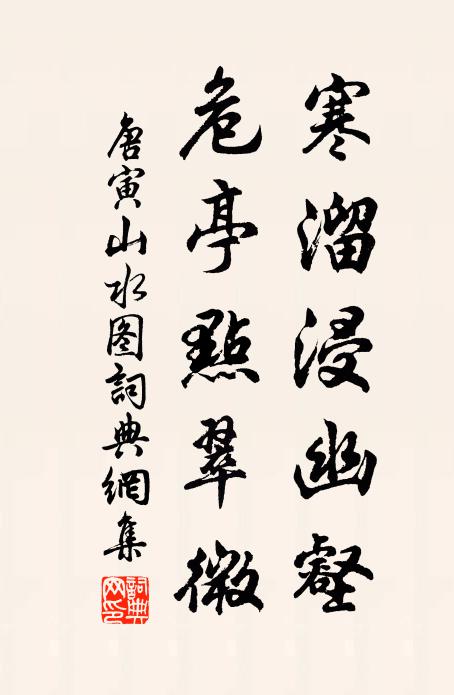 寒溜浸幽壑
危亭點翠微
唐寅山水图詞典網集
詞典
网印